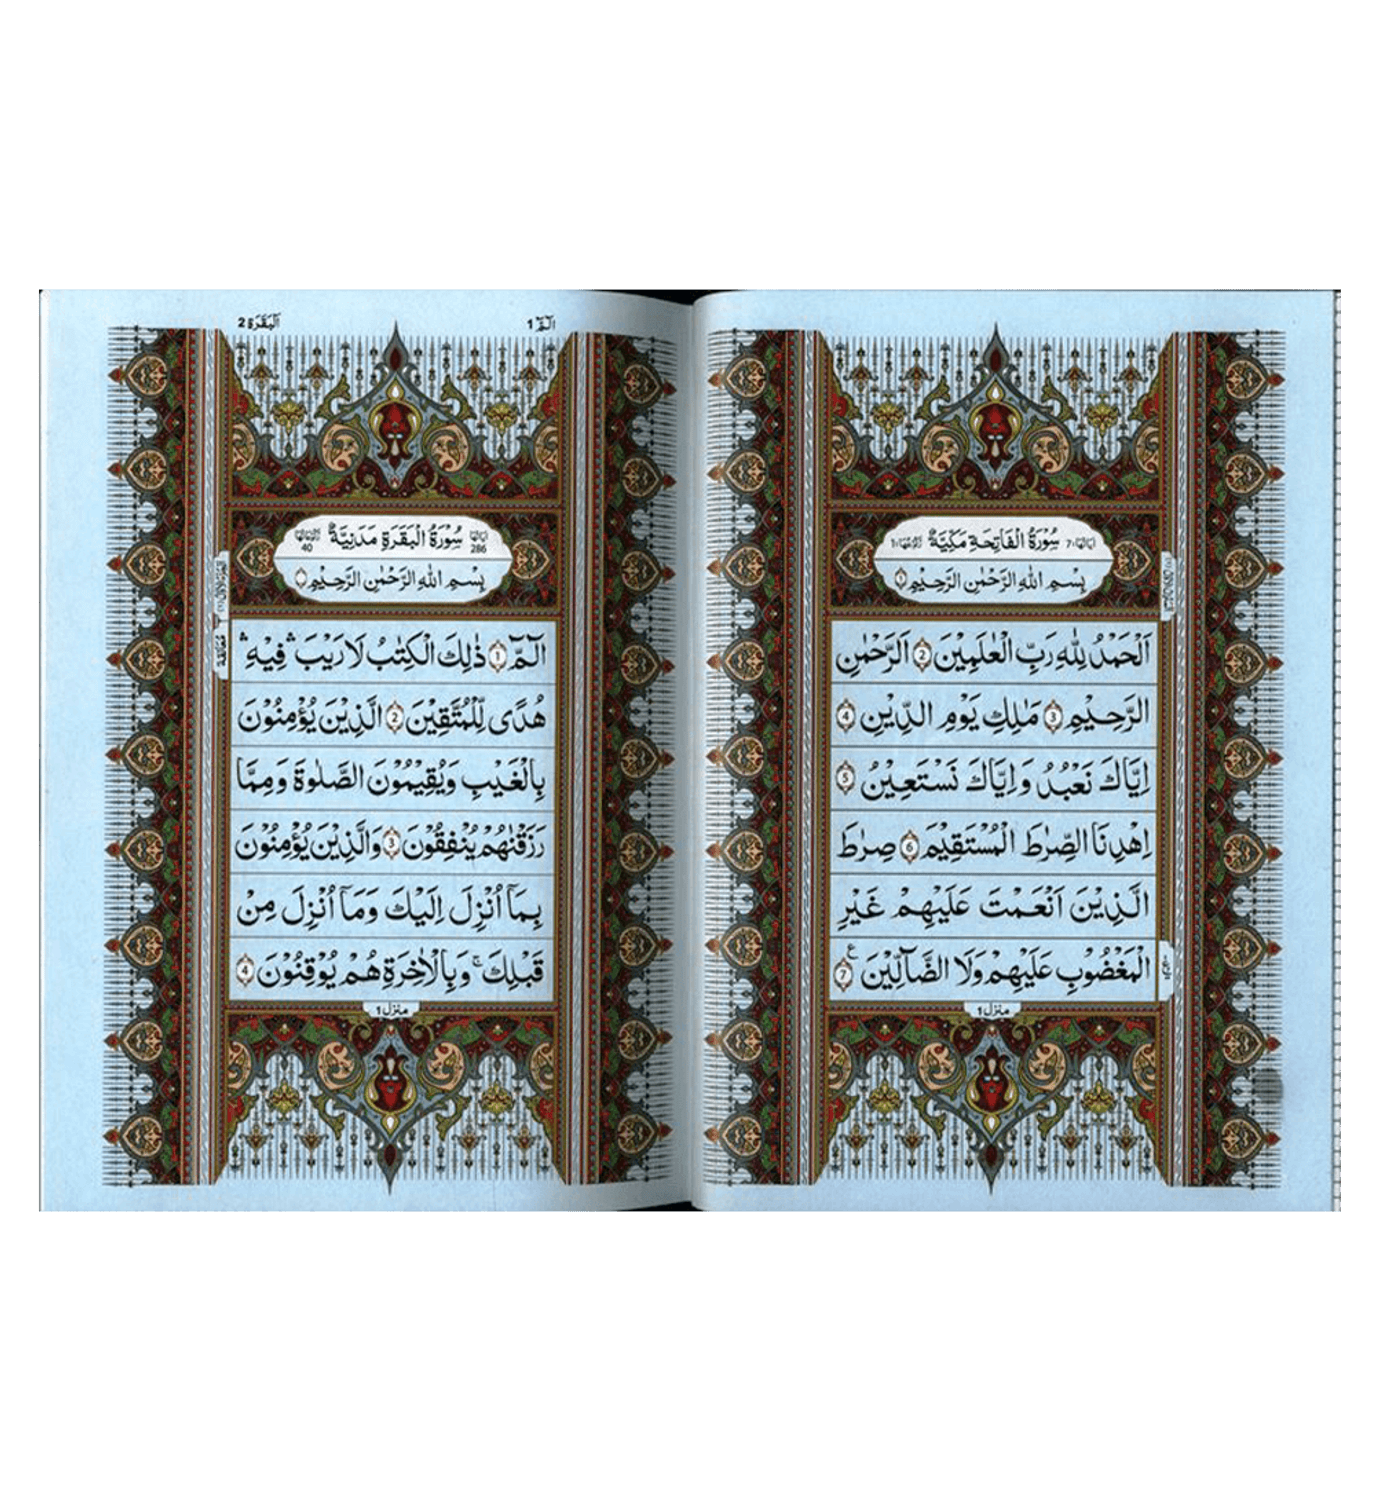 سُوْرَةُ الْفَاتِحَةِ مَكِّيَّةٌ
بِسْمِ اللهِ الرَّحْمٰنِ الرَّحِيْمِ ①
اَلْحَمْدُ لِلّٰهِ رَبِّ الْعٰلَمِيْنَ ② الرَّحْمٰنِ
الرَّحِيْمِ ③ مٰلِكِ يَوْمِ الدِّيْنِ ④
اِيَّاكَ نَعْبُدُ وَاِيَّاكَ نَسْتَعِيْنُ ⑤
اِهْدِنَا الصِّرٰطَ الْمُسْتَقِيْمَ ⑥ صِرٰطَ
الَّذِيْنَ اَنْعَمْتَ عَلَيْهِمْ غَيْرِ
الْمَغْضُوْبِ عَلَيْهِمْ وَلَا الضَّآلِّيْنَ ⑦ ع
منزل 1
الٓمّٓ 1
اَلْبَقَرَة 2
سُوْرَةُ الْبَقَرَةِ مَدَنِيَّةٌ
286
40
بِسْمِ اللهِ الرَّحْمٰنِ الرَّحِيْمِ
الٓمّٓ ① ذٰلِكَ الْكِتٰبُ لَا رَيْبَ ۛ فِيْهِ ۛ
هُدًى لِّلْمُتَّقِيْنَ ② الَّذِيْنَ يُؤْمِنُوْنَ
بِالْغَيْبِ وَيُقِيْمُوْنَ الصَّلٰوةَ وَمِمَّا
رَزَقْنٰهُمْ يُنْفِقُوْنَ ③ وَالَّذِيْنَ يُؤْمِنُوْنَ
بِمَآ اُنْزِلَ اِلَيْكَ وَمَآ اُنْزِلَ مِنْ
قَبْلِكَ ۚ وَبِالْاٰخِرَةِ هُمْ يُوْقِنُوْنَ ④
منزل 1